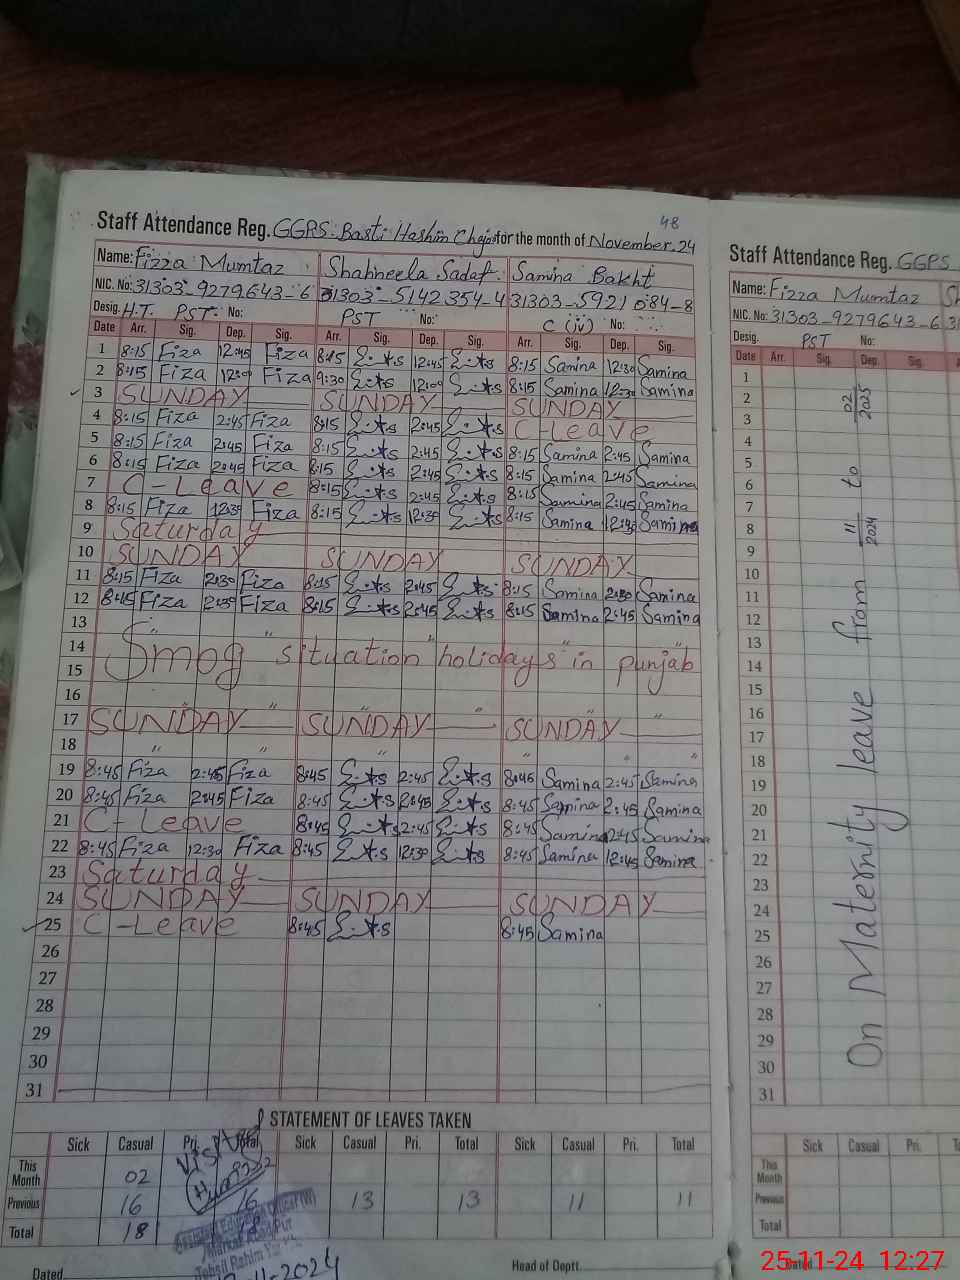 48
Staff Attendance Reg. GGPS. Basti Hashim Chajo for the month of November.24
Name: Fizza Mumtaz Shahneela Sadaf. Samina Bakht
NIC. No: 31303-9279643-6 31303-5142354-4 31303-5921084-8
Desig. H.T. PST. No: PST No: C (iv) No:
Date Arr. Sig. Dep. Sig. Arr. Sig. Dep. Sig. Arr. Sig. Dep. Sig.
1 8:15 Fiza 12:45 Fiza 8:15 12:45 8:15 Samina 12:30 Samina
2 8:15 Fiza 12:00 Fiza 9:30 12:00 8:15 Samina 12:30 Samina
3 SUNDAY SUNDAY SUNDAY
4 8:15 Fiza 2:45 Fiza 8:15 2:45 C-Leave
5 8:15 Fiza 2:45 Fiza 8:15 2:45 8:15 Samina 2:45 Samina
6 8:15 Fiza 2:45 Fiza 8:15 2:45 8:15 Samina 2:45 Samina
7 C-Leave 8:15 2:45 8:15 Samina 2:45 Samina
8 8:15 Fiza 12:30 Fiza 8:15 12:30 8:15 Samina Samina
9 Saturday
10 SUNDAY SUNDAY SUNDAY
11 8:15 Fiza 2:30 Fiza 8:15 2:45 8:15 Samina 2:30 Samina
12 8:15 Fiza Fiza 8:15 2:45 8:15 Samina 2:45 Samina
13
14 Smog situation holidays in punjab
15
16
17 SUNDAY SUNDAY SUNDAY
18
19 8:45 Fiza 2:45 Fiza 8:45 2:45 8:45 Samina 2:45 Samina
20 8:45 Fiza 2:45 Fiza 8:45 2:45 8:45 Samina 2:45 Samina
21 C-Leave 8:45 2:45 8:45 Samina 2:45 Samina
22 8:45 Fiza 12:30 Fiza 8:45 12:30 8:45 Samina 12:45 Samina
23 Saturday
24 SUNDAY SUNDAY SUNDAY
25 C-Leave 8:45 8:45 Samina
26
27
28
29
30
31
STATEMENT OF LEAVES TAKEN
Sick Casual Pri. Total Sick Casual Pri. Total Sick Casual Pri. Total
This Month 02
Previous 16 16 13 13 11 11
Total 18
Visited
Tehsil Rahim
Dated
Head of Deptt.
Staff Attendance Reg. GGPS
Name: Fizza Mumtaz Sh
NIC. No: 31303-9279643-6 31
Desig. PST No:
Date Arr. Sig. Dep. Sig. A
1
2
3
4
5
6
7
8
9
10
11
12
13
14
15
16
17
18
19
20
21
22
23
24
25
26
27
28
29
30
31
On Maternity leave from 11/2024 to 02/2025
Sick Casual Pri.
This Month
Previous
Total
Dated
25-11-24 12:27